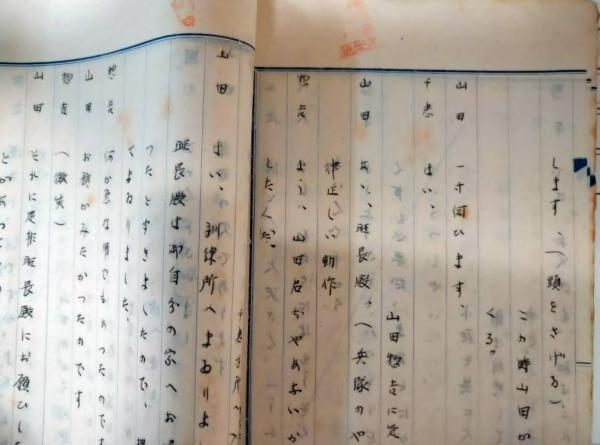 します（頭をさげる）
この時山田が
くる。
山田　一寸伺ひます、
千恵　はい、
山田惣吉に
山田　あゝ、班長殿、（兵隊のや
律正しい動作
惣吉　ようゝ、山田君ぢやあないか
した
千恵
山田　はい、訓練所へまゐりまし
班長殿より自分の家へお
つたとききましたので、
くまゐりました、
惣吉　何か急な用でもあつたので
山田　お顔がみたかつたのです
惣吉　（微笑）
山田　それに是非班長殿にお願ひし
とがあつて